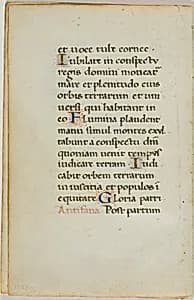 et uoce tube cornee.
Iubilate in conspectu
regis domini moueat
mare et plenitudo eius
orbis terrarum et uni
uersi qui habitant in
eo Flumina plaudent
manu simul montes exul
tabunt a conspectu dm̄
quoniam uenit
iudicare terram Iudi
cabit orbem terrarum
in iustitia et populos i
equitate Gloria patri
Antifana Post partum